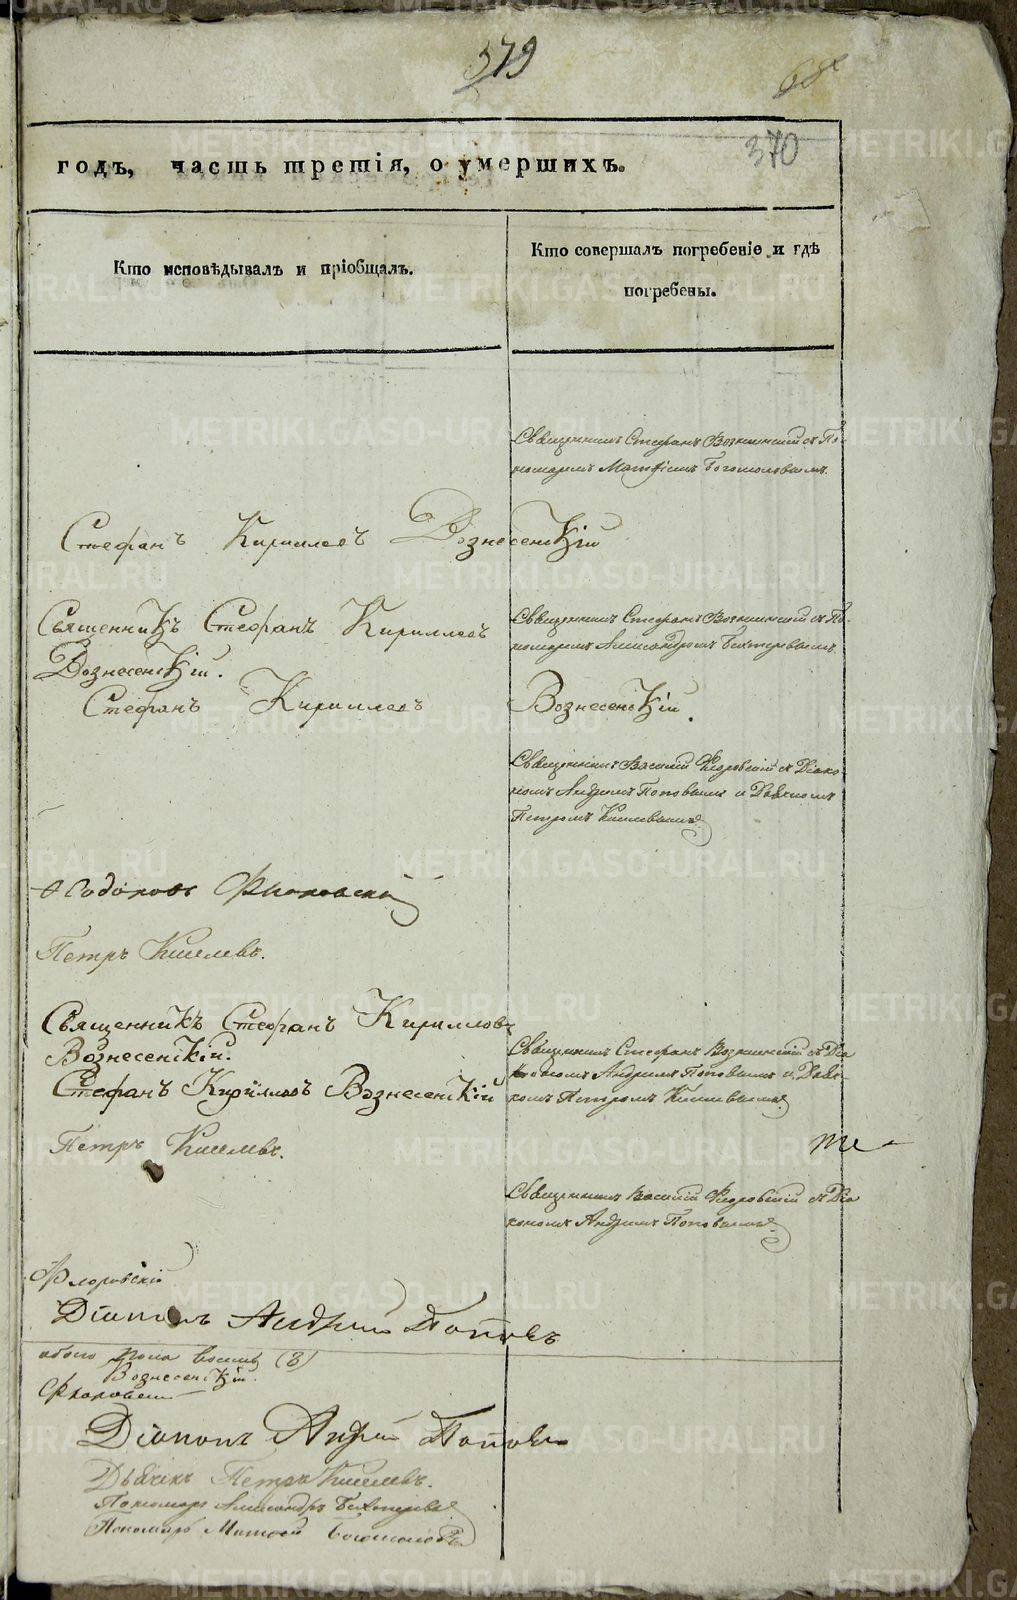 379
68
370
годъ, часть третія, о умершихъ.
Кто исповѣдывалъ и пріобщалъ.
Кто совершалъ погребеніе и гдѣ
погребены.
Священникъ Стефанъ Вознесенскій съ По-
номаремъ Матфіемъ Богомоловымъ.
Стефанъ Кирилловъ Вознесенскій
Священникъ Стефанъ Кирилловъ
Вознесенскій.
Священникъ Стефанъ Вознесенскій съ По-
номаремъ Александромъ Бехтеревымъ.
Стефанъ Кирилловъ Вознесенскій.
Священникъ Василій Флоровскій съ Діако-
номъ Андреемъ Поповымъ и Дьячкомъ
Петромъ Киселевымъ
Флоровскій
Петръ Киселевъ.
Священникъ Стефанъ Кирилловъ
Вознесенскій.
Стефанъ Кирилловъ Вознесенскій
Священникъ Стефанъ Вознесенскій съ Діа
кономъ Андреемъ Поповымъ и Дьяч-
комъ Петромъ Киселевымъ
Петръ Киселевъ.
Священникъ Василій Флоровскій съ Діа
кономъ Андреемъ Поповымъ
Флоровскій
Діаконъ Андрей Поповъ
обоего пола восемь (8)
Вознесенскій.
Флоровскій
Діаконъ Андрей Поповъ
Дьячекъ Петръ Киселевъ.
Пономарь Александръ Бехтеревъ
Пономарь Матфей Богомоловъ
METRIKI.GASO-URAL.RU